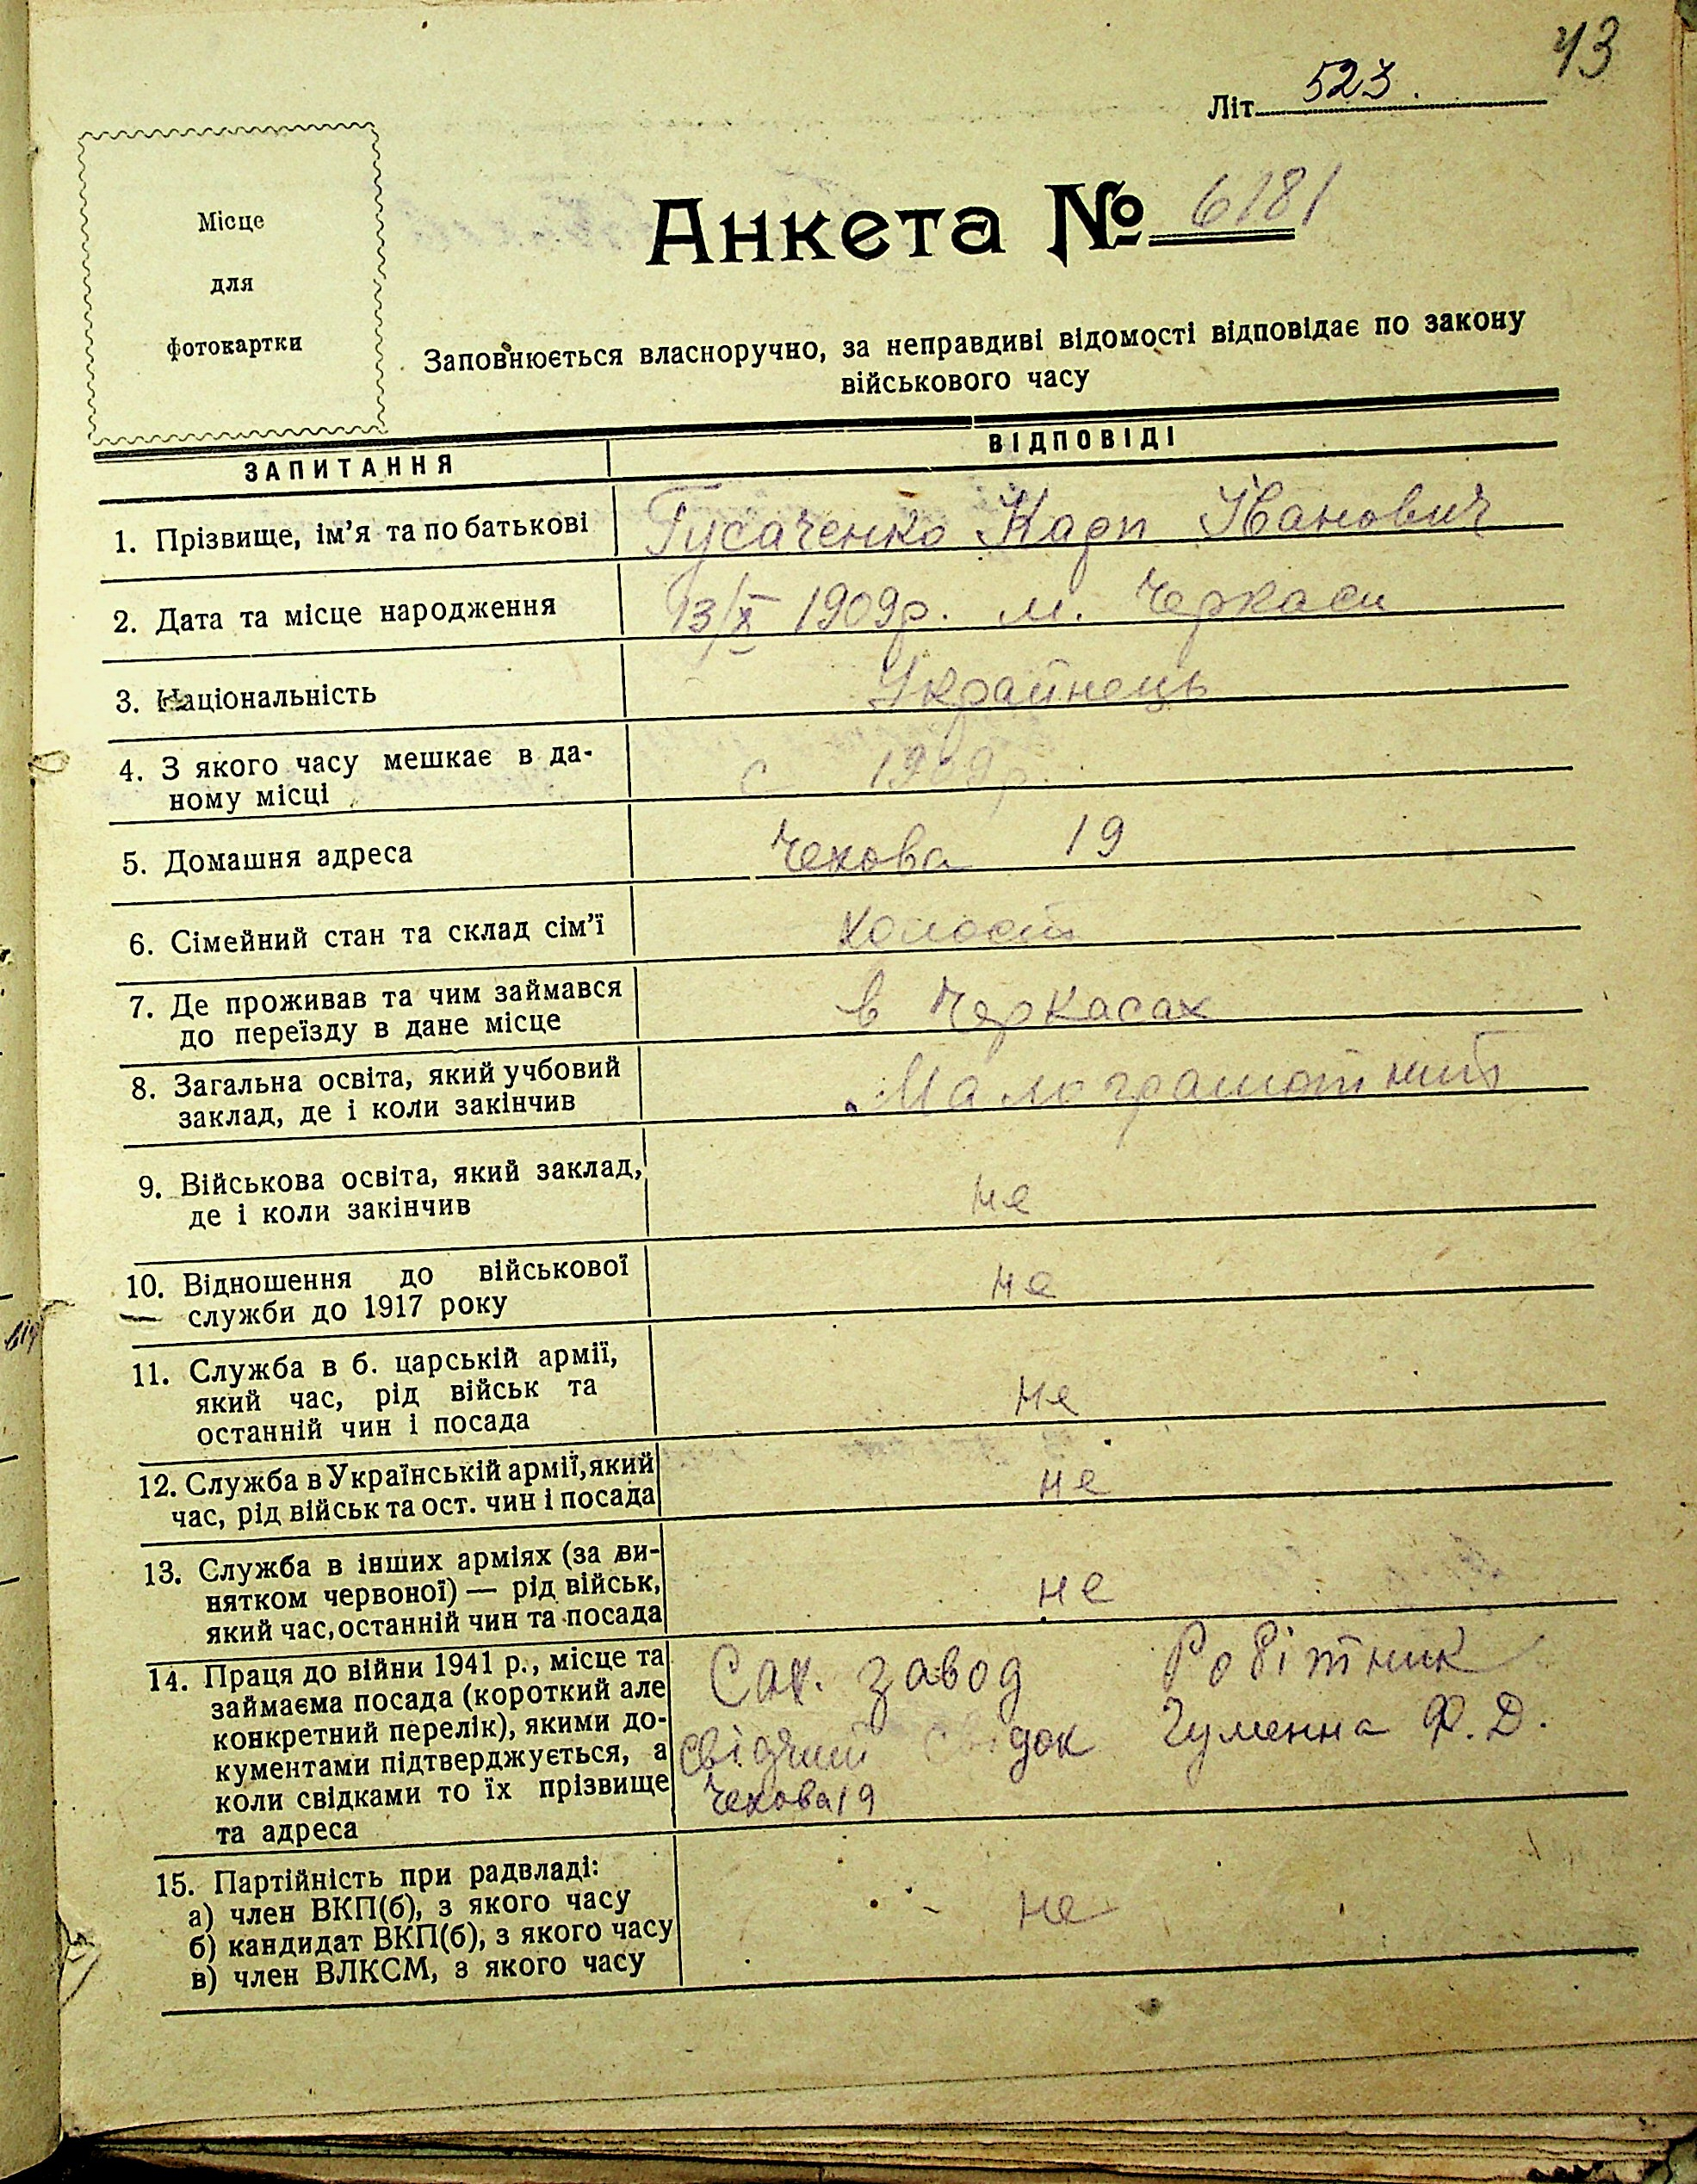 43
Літ 523.
Місце
для
фотокартки
Анкета № 6181
Заповнюється власноручно, за неправдиві відомості відповідає по закону
військового часу
ЗАПИТАННЯ
ВІДПОВІДІ
1. Прізвище, ім'я та по батькові
Гусаченко Карп Іванович
2. Дата та місце народження
13/X 1909р. м. Черкаси
3. Національність
Украйнець
4. З якого часу мешкає в да-
ному місці
с 1909р.
5. Домашня адреса
Чехова 19
6. Сімейний стан та склад сім'ї
холост
7. Де проживав та чим займався
до переїзду в дане місце
в Черкасах
8. Загальна освіта, який учбовий
заклад, де і коли закінчив
Малограмотний
9. Військова освіта, який заклад,
де і коли закінчив
не
10. Відношення до військової
служби до 1917 року
не
11. Служба в б. царській армії,
який час, рід військ та
останній чин і посада
не
12. Служба в Українській армії, який
час, рід військ та ост. чин і посада
не
13. Служба в інших арміях (за ви-
нятком червоної) — рід військ,
який час, останній чин та посада
не
14. Праця до війни 1941 р., місце та
займаєма посада (короткий але
конкретний перелік), якими до-
кументами підтверджується, а
коли свідками то їх прізвище
та адреса
Сах. завод Робітник
свідок Гуменна Ф. Д.
Чехова 19
15. Партійність при радвладі:
а) член ВКП(б), з якого часу
б) кандидат ВКП(б), з якого часу
в) член ВЛКСМ, з якого часу
не